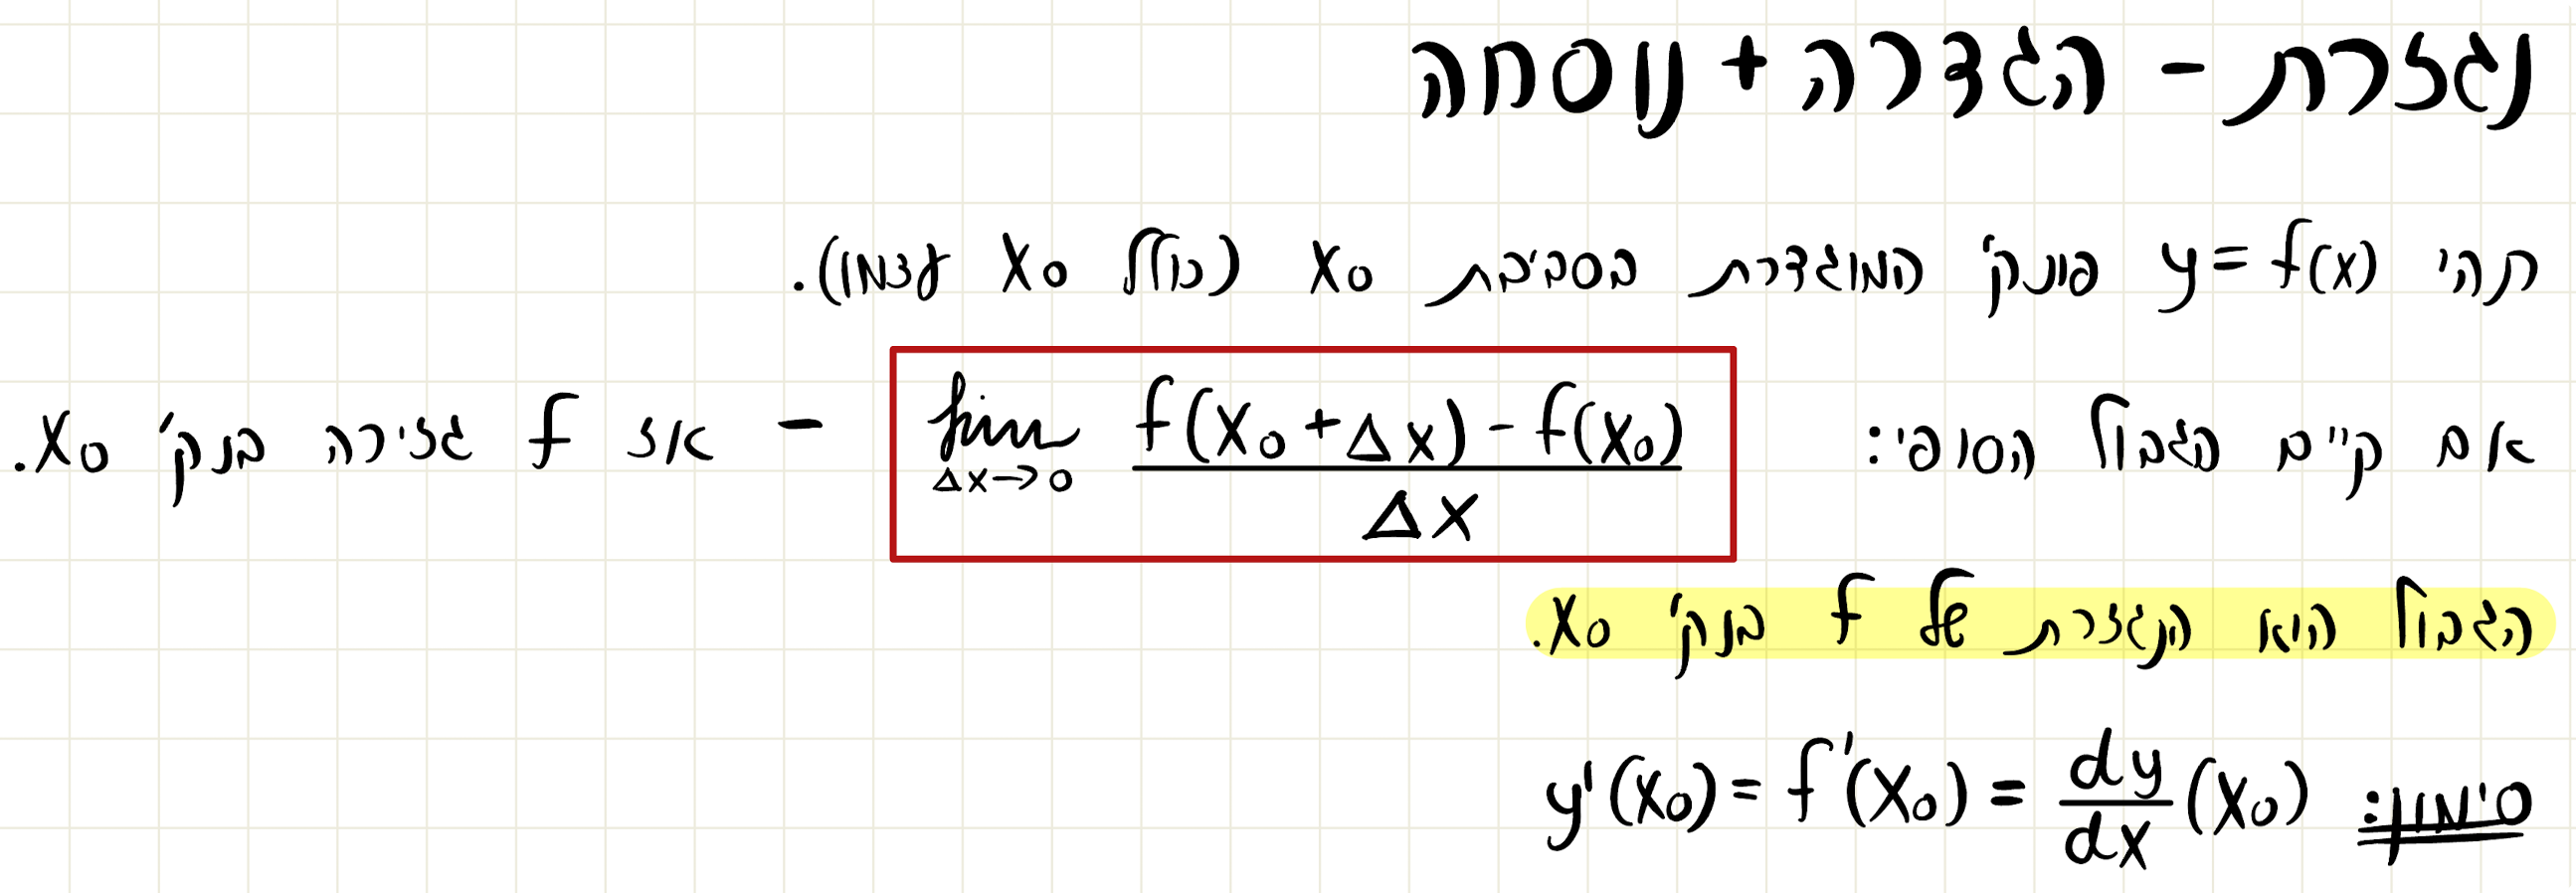 נגזרת - הגדרה + נוסחה
תהי y = f(x) פונק' המוגדרת בסביבת x₀ (כולל x₀ עצמו).
אם קיים הגבול הסופי: lim Δx→0 (f(x₀+Δx) - f(x₀))/Δx - אז f גזירה בנק' x₀.
הגבול הוא הנגזרת של f בנק' x₀.
סימון: y'(x₀) = f'(x₀) = dy/dx (x₀)